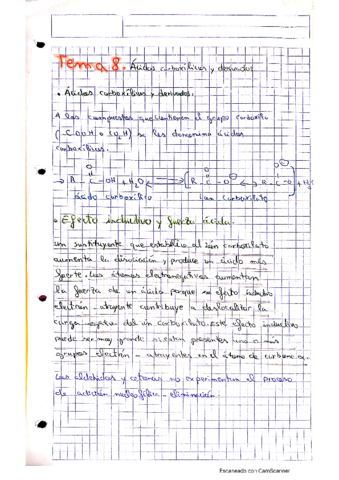 Tema 8. Ácidos carboxílicos y derivados
• Ácidos carboxílicos y derivados.
A los compuestos que contienen el grupo carboxilo
(-COOH o CO2H) se les denomina ácidos
carboxílicos.
→ R - C - OH + H2O ⇌ [R - C - O⊖ ↔ R - C = O] + H
ácido carboxílico ion carboxilato
• Efecto inductivo y fuerza ácida.
Un sustituyente que estabilice al ión carboxilato
aumenta la disociación y produce un ácido más
fuerte. Los átomos electronegativos aumentan
la fuerza de un ácido porque su efecto inductivo
electrón-atrayente contribuye a deslocalizar la
carga negativa del ión carboxilato. Este efecto inductivo
puede ser muy grande si están presentes uno o más
grupos electrón-atrayentes en el átomo de carbono α.
Los aldehídos y cetonas no experimentan el proceso
de adición nucleofílica-eliminación.
Escaneado con CamScanner